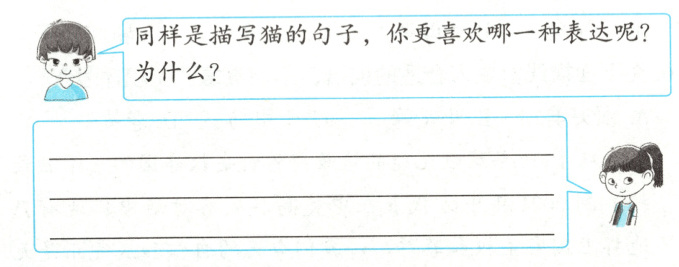 同样是描写猫的句子，你更喜欢哪一种表达呢？
为什么？